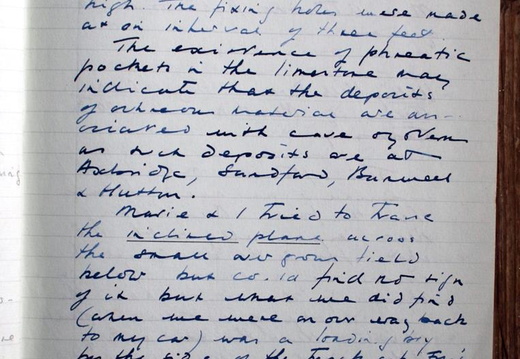 high. The fixing holes were made
at an interval of three feet.
The existence of phreatic
pockets in the limestone may
indicate that the deposits
of ochreous material are as-
sociated with cave system
as such deposits are at
Axbridge, Sandford, Banwell
& Hutton.
Marie & I tried to trace
the inclined plane across
the small field
below but could find no sign
of it but what we did find
(when we were on our way back
to my car) was a loading bay
by the side of the track